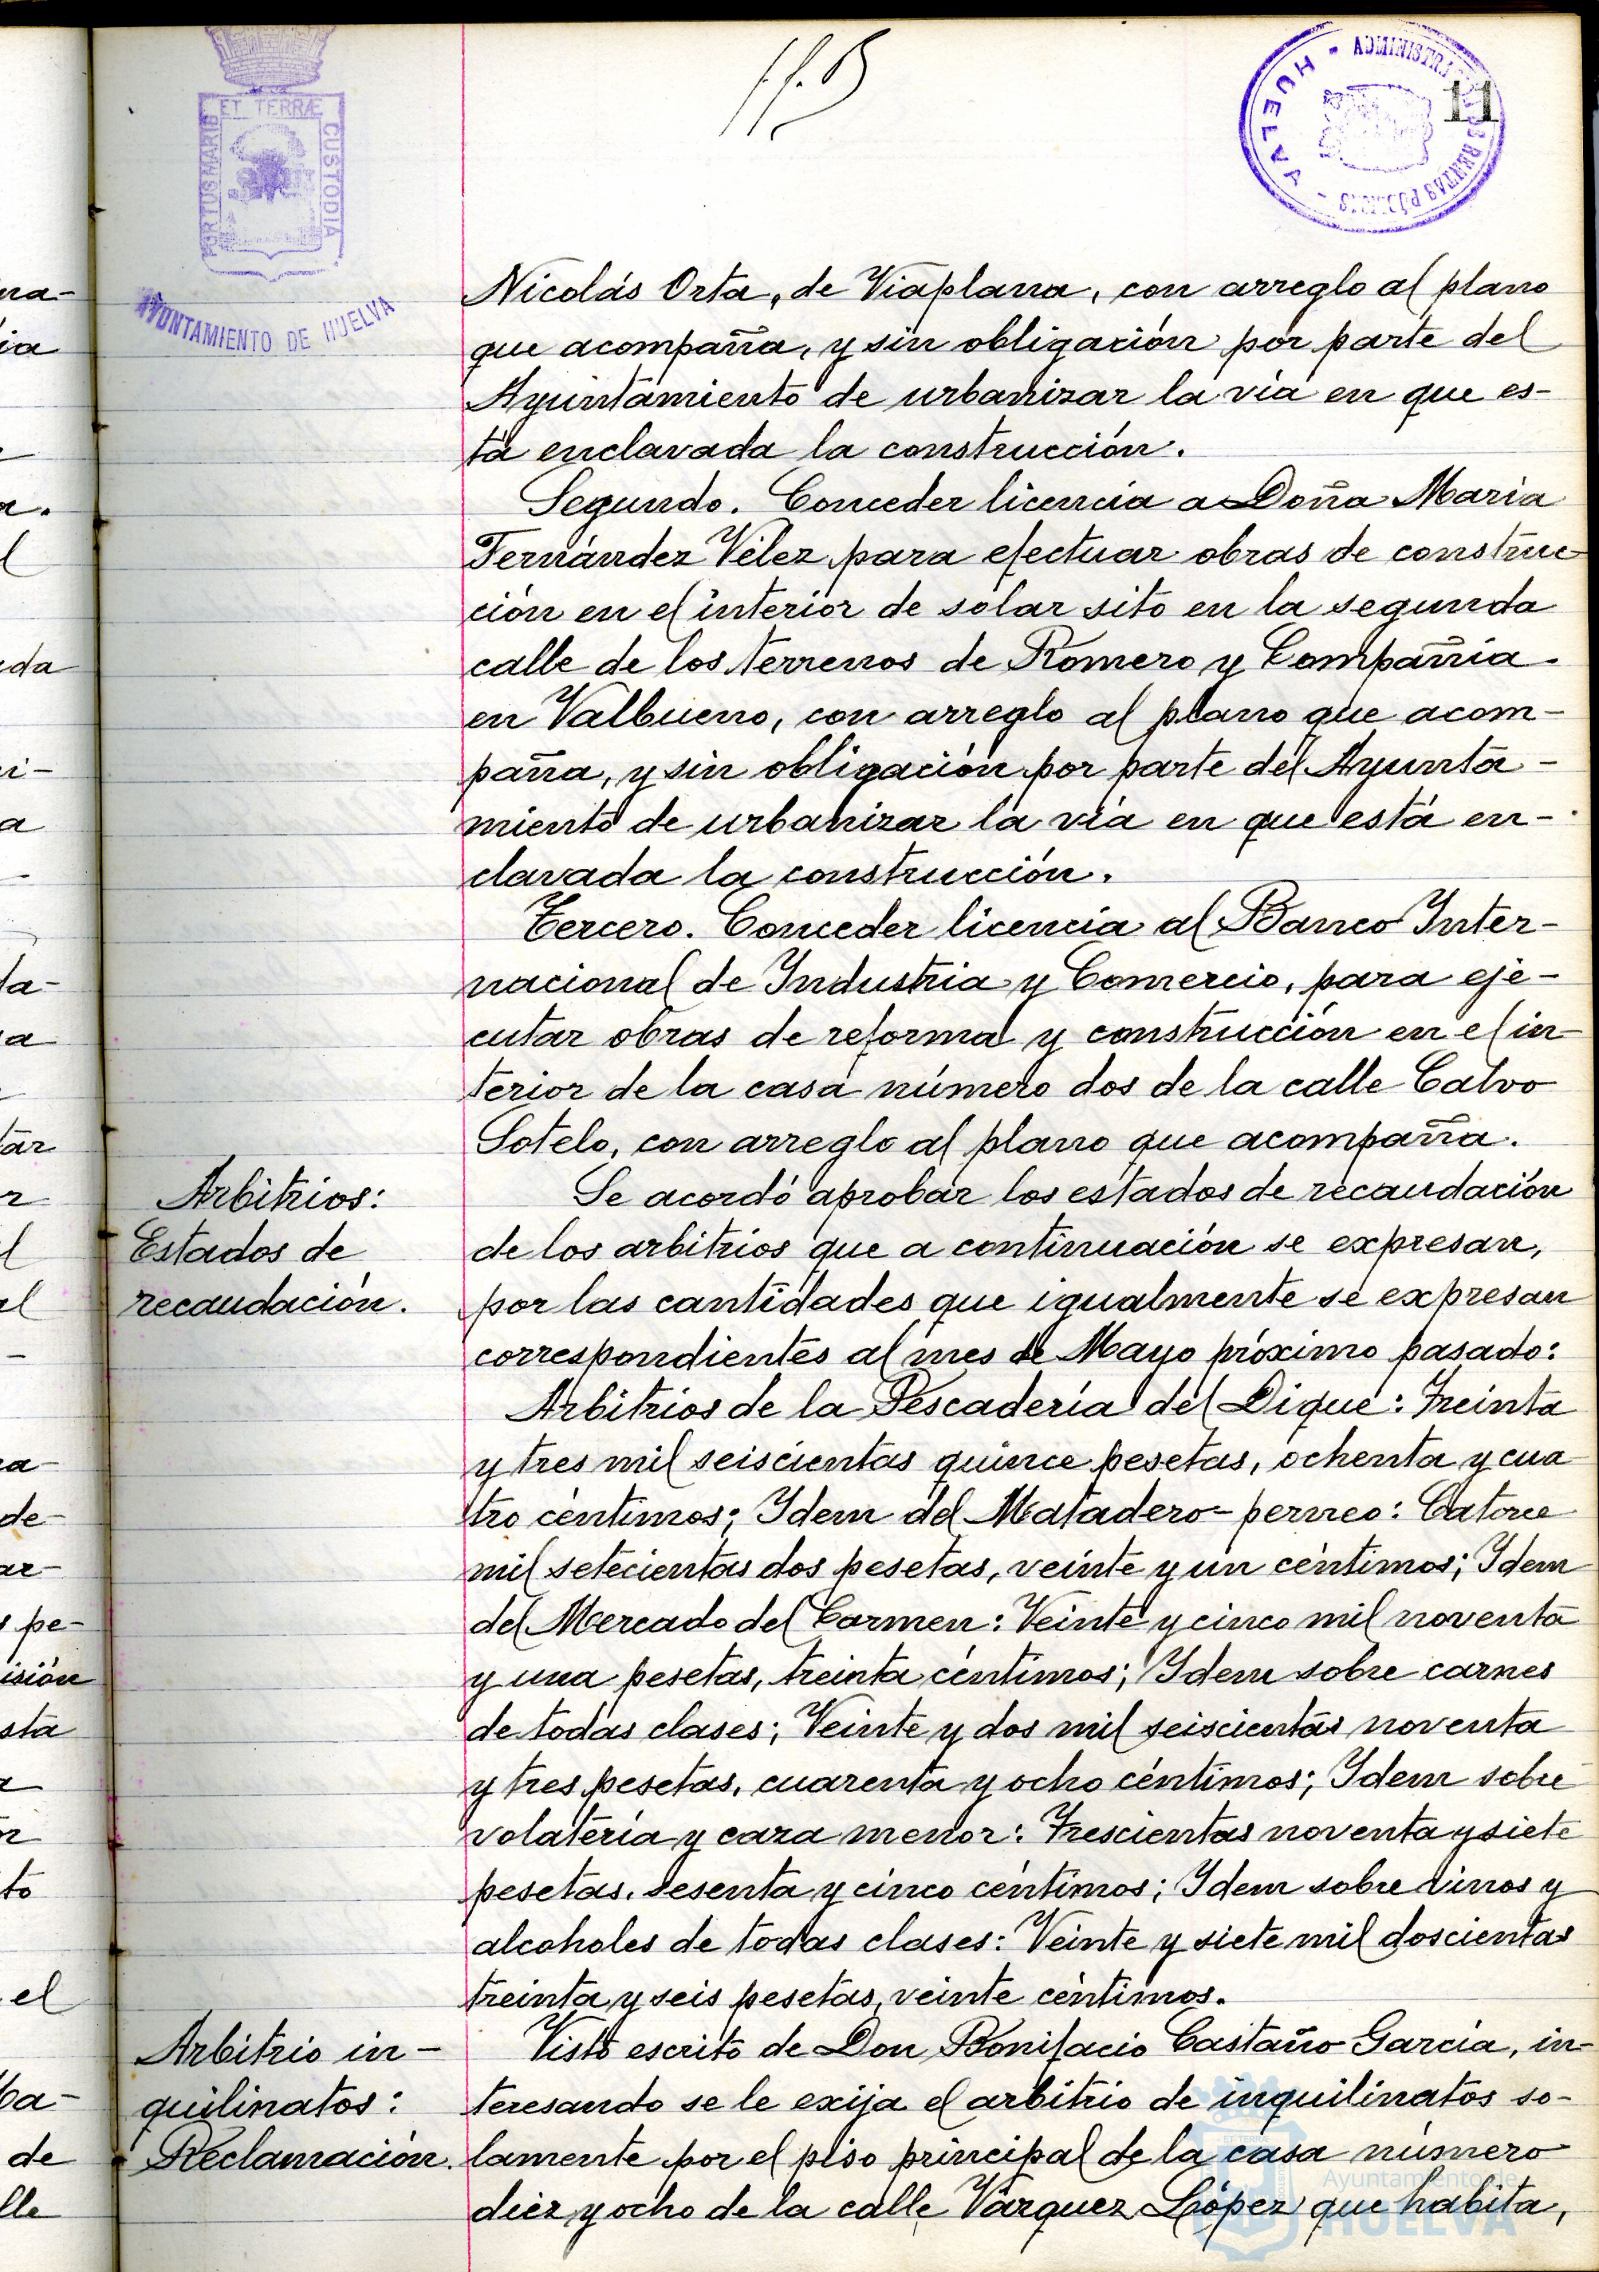 11
ET TERRÆ
PORTUS MARIS
CUSTODIA
AYUNTAMIENTO DE HUELVA
HUELVA
Nicolás Orta, de Viaplana, con arreglo al plano
que acompaña, y sin obligación por parte del
Ayuntamiento de urbanizar la vía en que es-
tá enclavada la construcción.
Segundo. Conceder licencia a Doña María
Fernández Vélez para efectuar obras de construc
ción en el interior de solar sito en la segunda
calle de los terrenos de Romero y Compañía
en Valbueno, con arreglo al plano que acom-
paña, y sin obligación por parte del Ayunta-
miento de urbanizar la vía en que está en-
clavada la construcción.
Tercero. Conceder licencia al Banco Inter-
nacional de Industria y Comercio, para eje-
cutar obras de reforma y construcción en el in-
terior de la casa número dos de la calle Calvo
Sotelo, con arreglo al plano que acompaña.
Arbitrios:
Estados de
recaudación.
Se acordó aprobar los estados de recaudación
de los arbitrios que a continuación se expresan,
por las cantidades que igualmente se expresan
correspondientes al mes de Mayo próximo pasado:
Arbitrios de la Pescadería del Dique: Treinta
y tres mil seiscientas quince pesetas, ochenta y cua
tro céntimos; Idem del Matadero-perneo: Catorce
mil setecientas dos pesetas, veinte y un céntimos; Idem
del Mercado del Carmen: Veinte y cinco mil noventa
y una pesetas, treinta céntimos; Idem sobre carnes
de todas clases; Veinte y dos mil seiscientas noventa
y tres pesetas, cuarenta y ocho céntimos; Idem sobre
volatería y caza menor: Trescientas noventa y siete
pesetas, sesenta y cinco céntimos; Idem sobre vinos y
alcoholes de todas clases: Veinte y siete mil doscientas
treinta y seis pesetas, veinte céntimos.
Arbitrio in-
quilinatos:
Reclamación.
Visto escrito de Don Bonifacio Castaño García, in-
teresando se le exija el arbitrio de inquilinatos so-
lamente por el piso principal de la casa número
diez y ocho de la calle Vázquez López que habita,
Ayuntamiento de
HUELVA